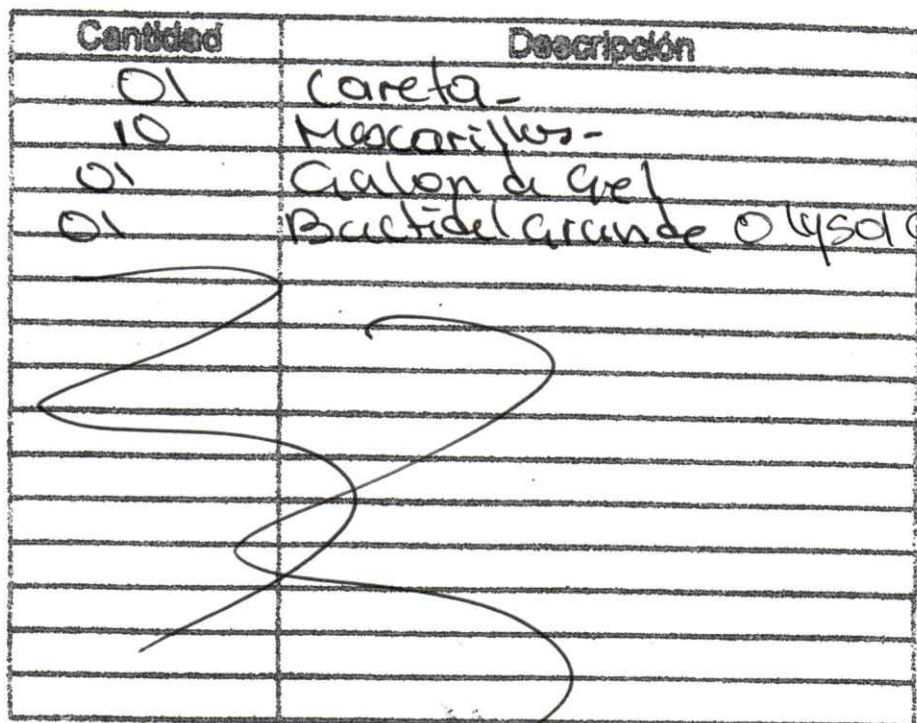 Cantidad Descripción
01 Careta-
10 Mascarillas-
01 Galon de Gel
01 Bactidel Grande O lysol